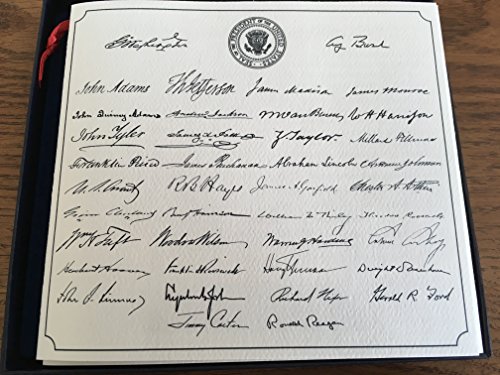 SEAL OF THE PRESIDENT OF THE UNITED STATES
G Washington Ge Bush
John Adams Th Jefferson James Madison James Monroe
John Quincy Adams Andrew Jackson M Van Buren W H Harrison
John Tyler James K Polk Z Taylor Millard Fillmore
Franklin Pierce James Buchanan Abraham Lincoln Andrew Johnson
U. S. Grant R B Hayes James A Garfield Chester A Arthur
Grover Cleveland Benj Harrison William McKinley Theodore Roosevelt
Wm H Taft Woodrow Wilson Warren G Harding Calvin Coolidge
Herbert Hoover Franklin D Roosevelt Harry Truman Dwight Eisenhower
John F. Kennedy Lyndon B. Johnson Richard Nixon Gerald R Ford
Jimmy Carter Ronald Reagan